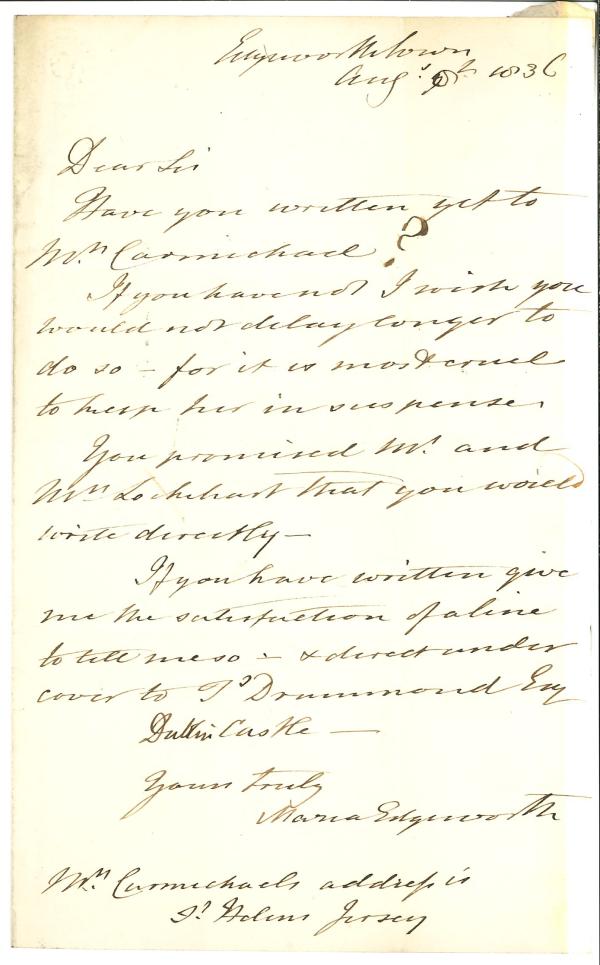 Edgeworthstown
Aug.st 9th 1836
Dear Sir
Have you written yet to
Mrs Carmichael?
If you have not I wish you
would not delay longer to
do so – for it is most cruel
to keep her in suspense.
You promised Mr. and
Mrs Lockhart that you would
write directly –
If you have written give
me the satisfaction of a line
to tell me so – & direct under
cover to Ts Drummond Esq
Dublin Castle —
Yours truly
Maria Edgeworth
Mrs Carmichaels address is
St Heliers Jersey